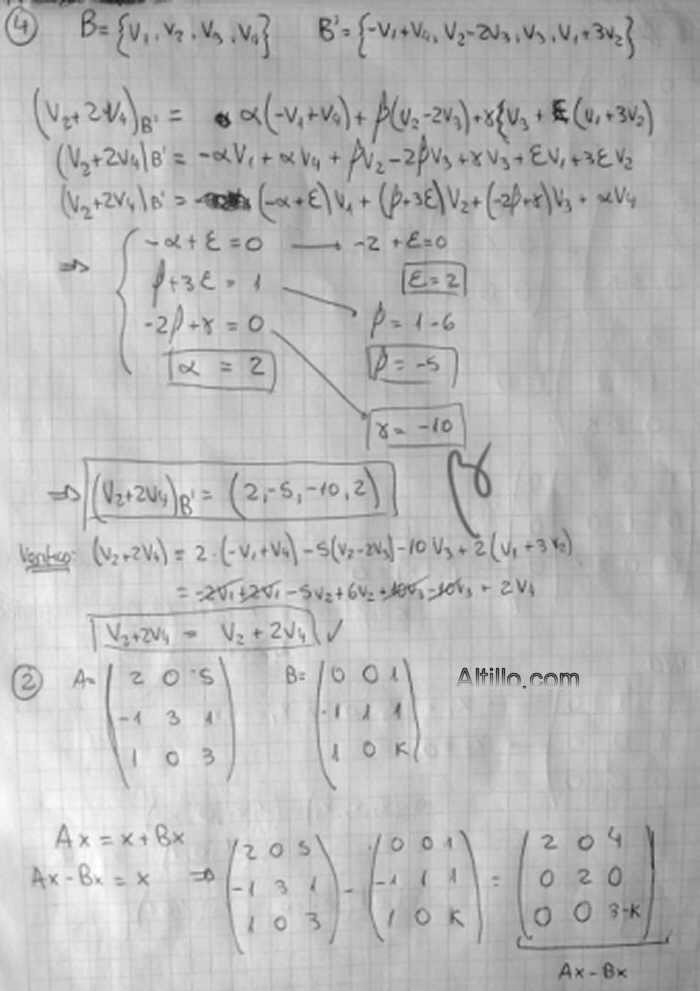 ④ B = {V₁, V₂, V₃, V₄} B' = {-V₁+V₄, V₂-2V₃, V₃, V₁+3V₂}
(V₂+2V₄)B' = α(-V₁+V₄) + β(V₂-2V₃) + γ{V₃ + ε(V₁+3V₂)
(V₂+2V₄)B' = -αV₁ + αV₄ + βV₂ - 2βV₃ + γV₃ + εV₁ + 3εV₂
(V₂+2V₄)B' = (-α+ε)V₁ + (β+3ε)V₂ + (-2β+γ)V₃ + αV₄
-α+ε = 0 → -2+ε=0
⇒ β+3ε = 1 ε=2
-2β+γ = 0 β = 1-6
α = 2 β = -5
γ = -10
⇒ (V₂+2V₄)B' = (2,-5,-10,2)
Verifico: (V₂+2V₄) = 2·(-V₁+V₄) - 5(V₂-2V₃) - 10V₃ + 2(V₁+3V₂)
= -2V₁+2V₁-5V₂+6V₂+10V₃-10V₃+2V₄
V₂+2V₄ = V₂+2V₄ ✓
② A= (2 0 5 B= (0 0 1 Altillo.com
-1 3 1 -1 1 1
1 0 3) 1 0 K)
Ax = x + Bx
Ax - Bx = x ⇒ (2 0 5 - (0 0 1 = (2 0 4
-1 3 1 -1 1 1 0 2 0
1 0 3) 1 0 K) 0 0 3-K)
Ax-Bx